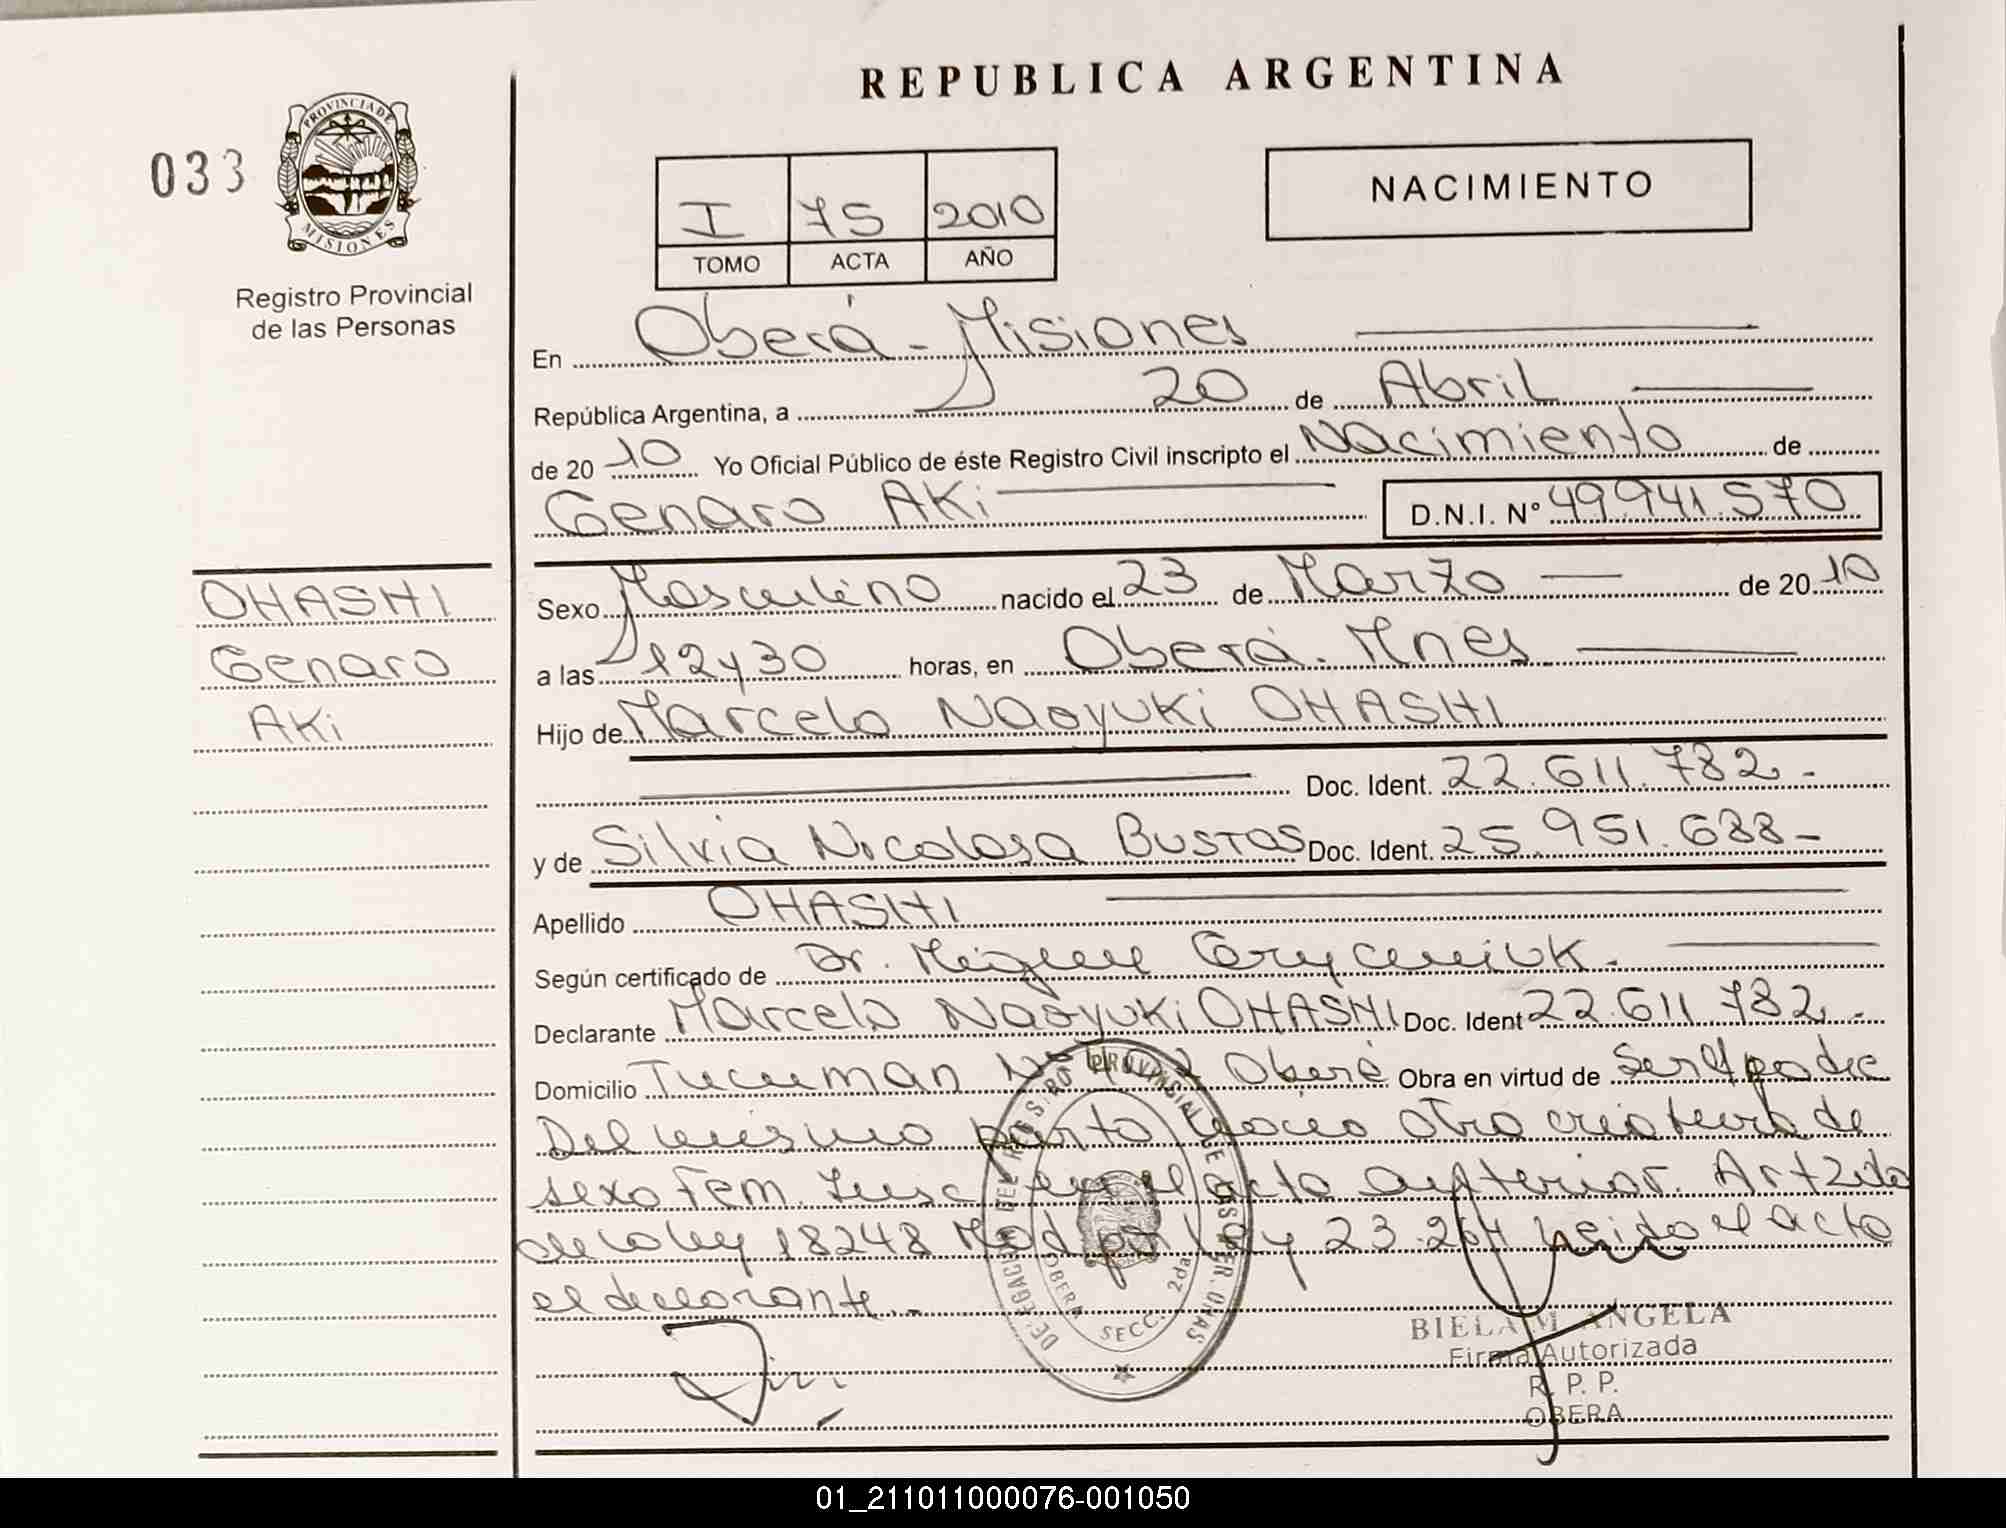 REPUBLICA ARGENTINA
033
PROVINCIA DE
MISIONES
Registro Provincial
de las Personas
I 75 2010
TOMO ACTA AÑO
NACIMIENTO
En Oberá - Misiones
República Argentina, a 20 de Abril
de 20 10 Yo Oficial Público de éste Registro Civil inscripto el Nacimiento de
Genaro AKi D.N.I. N° 49.941.570
OHASHI
Genaro
AKi
Sexo Masculino nacido el 23 de Marzo de 20 10
a las 12 y 30 horas, en Oberá. Mnes
Hijo de Marcelo Naoyuki OHASHI
Doc. Ident. 22.611.782.-
y de Silvia Nicolasa BUSTOS Doc. Ident. 25.951.688-
Apellido OHASHI
Según certificado de Dr. Miguel
Declarante Marcelo Naoyuki OHASHI Doc. Ident 22.611.782.-
Domicilio Tucuman Oberá Obra en virtud de ser el padre
Del mismo parto nacio otra criatura de
sexo Fem. Insc en el acta anterior. Art 2 de
de la ley 18248 Mod por ley 23.264 Leido el acta
el declarante.-
OBERA SECC. 2da
BIELA M ANGELA
Firma Autorizada
R. P. P.
OBERA
01_211011000076-001050